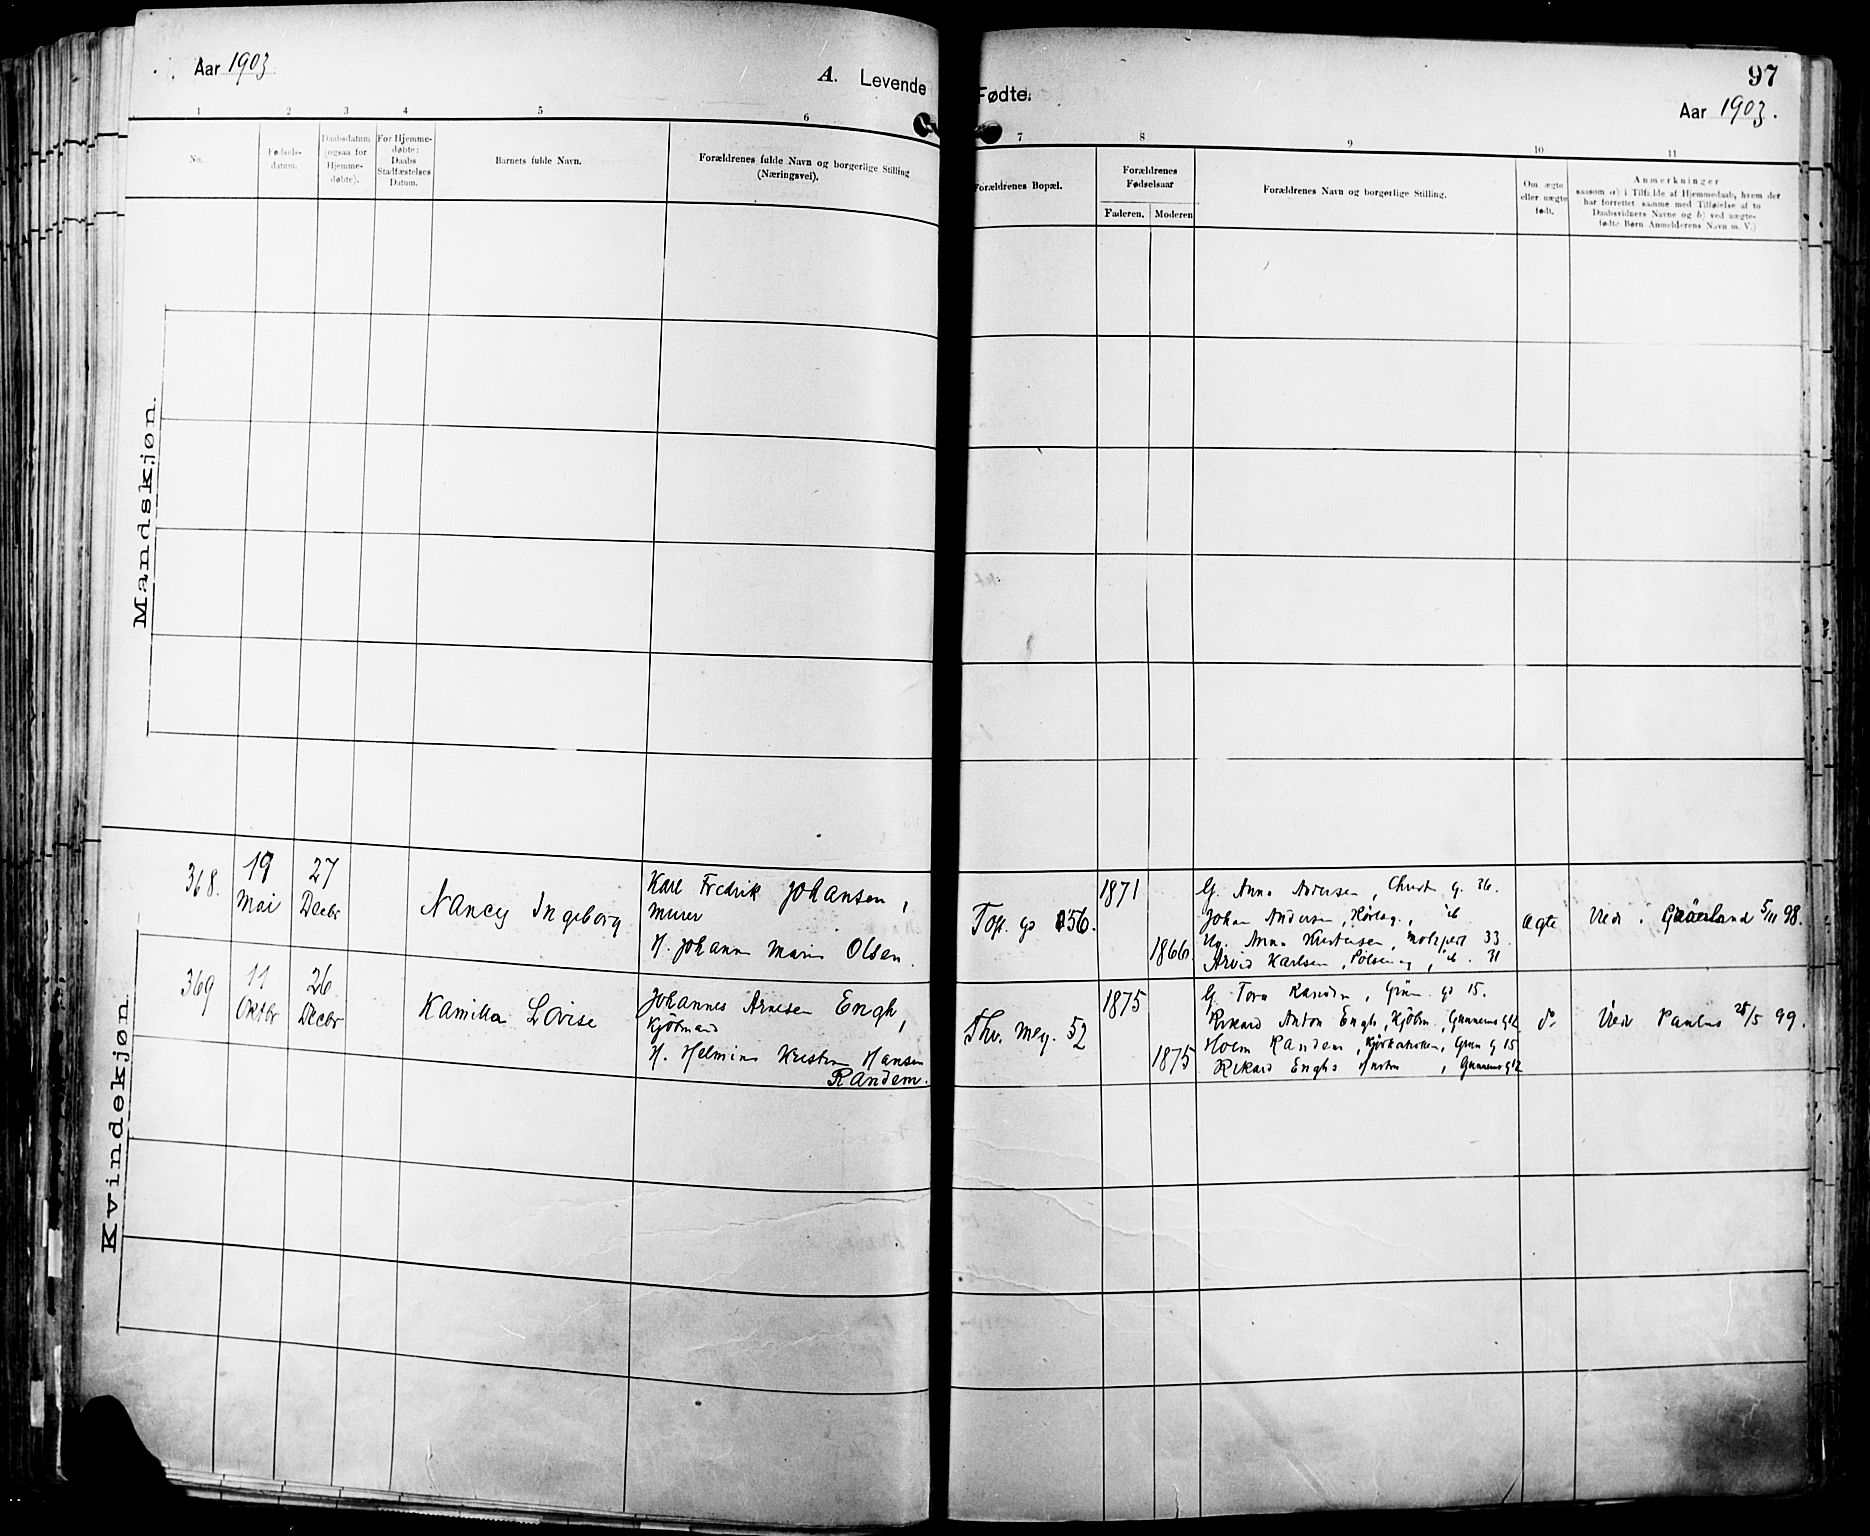 Aar 1903
A. Levende
Fødte.
97
Aar 1903.
1
2
3
4
5
6
7
8
9
10
11
No.
Fødsels-
datum.
Daabsdatum
(ogsaa for
Hjemme-
døbte).
For Hjemme-
døbte:
Daabs
Stadfæstelses
Datum.
Barnets fulde Navn.
Forældrenes fulde Navn og borgerlige Stilling
(Næringsvei).
Forældrenes Bopæl.
Forældrenes
Fødselsaar
Faderen.
Moderen
Forældrenes Navn og borgerlige Stilling.
Om ægte
eller uægte
født.
Anmerkninger
saasom a) i Tilfælde af Hjemmedaab, hvem der
har forrettet samme med Tilføielse af to
Daabsvidners Navne og b) ved uægte-
fødte Børn Anmelderens Navn m. V.)
Mandskjøn.
Kvindekjøn.
368.
19
Mai
27
Decbr
Nancy Ingeborg
Karl Fredrik Johansen,
Murer
H. Johanne Marie Olsen.
Top. gd 56.
1871
1866
G. Anna Andersen, Christ. g. 36.
Johan Andersen,
Anna Kristensen, 33
Arvid Karlsen, 31
ægte
Viet i Grønland 5/11 98.
369
11
Oktbr
26
Decbr
Kamilla Lovise
Johannes Arnesen Engh,
Kjøbmand
H. Helmine Kristine Hansen
Randem.
Thv. Meg. 52
1875
1875
G. Tora Randem, Grün. gd 15.
Rikard Anton Engh, Kjøbm., Gunnerus g 12
Holm Randem, Grün g 15
Rikard Enghs Hustru, Gunnerus g 12
do
Viet Paulus 28/5 99.